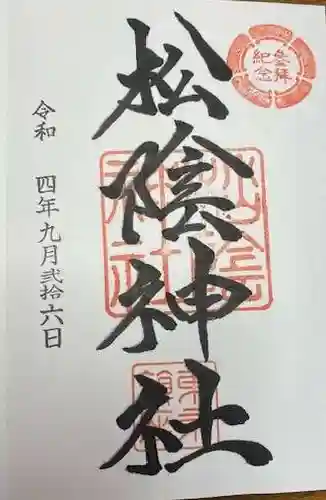 参拝
紀念
松陰神社
令和 四年九月弐拾六日